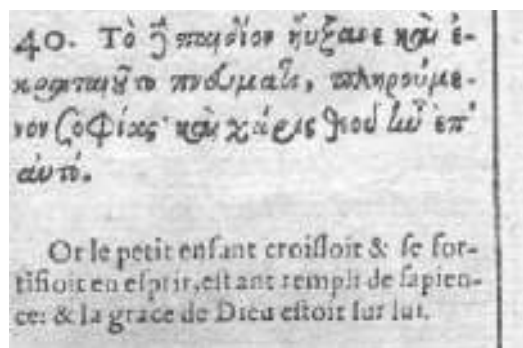 40. Τὸ δὲ παιδίον ηὔξανε καὶ ἐ-
κραταιοῦτο πνεύματι, πληρούμε-
νον σοφίας· καὶ χάρις Θεοῦ ἦν ἐπ'
αὐτό.
Or le petit enfant croiſſoit & ſe for-
tifioit en eſprit, eſtant rempli de ſapien-
ce: & la grace de Dieu eſtoit ſur lui.